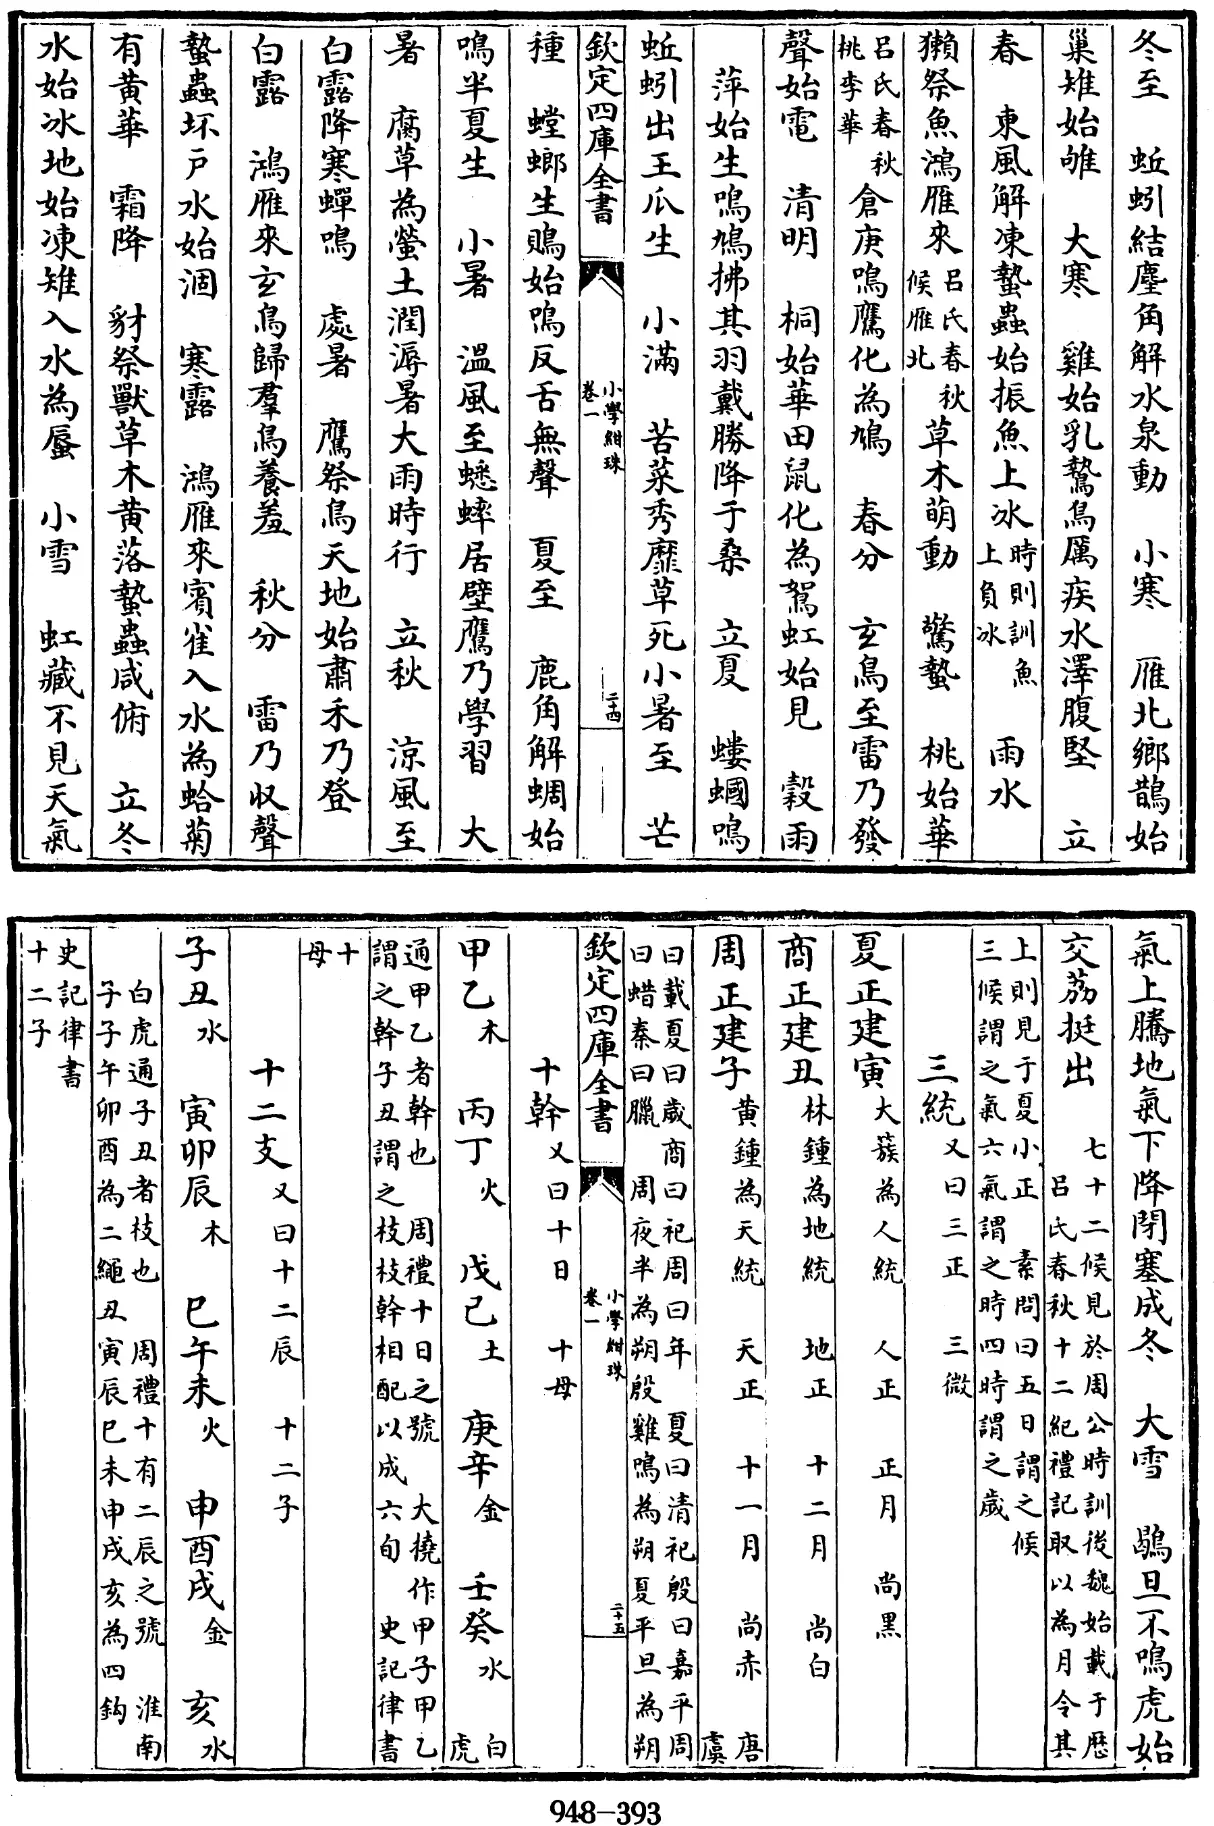 冬至　蚯蚓結麋角解水泉動　小寒　雁北鄉鵲始
巢雉始雊　大寒　雞始乳鷙鳥厲疾水澤腹堅　立
春　東風解凍蟄蟲始振魚上冰時則訓魚上負冰　雨水
獺祭魚鴻雁來呂氏春秋候雁北草木萌動　驚蟄　桃始華
呂氏春秋桃李華倉庚鳴鷹化為鳩　春分　玄鳥至雷乃發
聲始電　清明　桐始華田鼠化為鴽虹始見　穀雨
萍始生鳴鳩拂其羽戴勝降于桑　立夏　螻蟈鳴
蚯蚓出王瓜生　小滿　苦菜秀靡草死小暑至　芒
欽定四庫全書　小學紺珠卷一　二十四
種　螳螂生鵙始鳴反舌無聲　夏至　鹿角解蜩始
鳴半夏生　小暑　溫風至蟋蟀居壁鷹乃學習　大
暑　腐草為螢土潤溽暑大雨時行　立秋　涼風至
白露降寒蟬鳴　處暑　鷹祭鳥天地始肅禾乃登
白露　鴻雁來玄鳥歸羣鳥養羞　秋分　雷乃収聲
蟄蟲坏戶水始涸　寒露　鴻雁來賓雀入水為蛤菊
有黃華　霜降　豺祭獸草木黃落蟄蟲咸俯　立冬
水始冰地始凍雉入水為蜃　小雪　虹藏不見天氣
氣上騰地氣下降閉塞成冬　大雪　鶡旦不鳴虎始
交荔挺出　七十二候見於周公時訓後魏始載于歷呂氏春秋十二紀禮記取以為月令其
上則見于夏小正　素問曰五日謂之候三候謂之氣六氣謂之時四時謂之歲
三統　又曰三正　三微
夏正建寅　大蔟為人統　人正　正月　尚黑
商正建丑　林鍾為地統　地正　十二月　尚白
周正建子　黃鍾為天統　天正　十一月　尚赤　唐虞
曰載夏曰歲商曰祀周曰年　夏曰清祀殷曰嘉平周曰蜡秦曰臘　周夜半為朔殷雞鳴為朔夏平旦為朔
欽定四庫全書　小學紺珠卷一　二十五
十幹　又曰十日　十母
甲乙木　丙丁火　戊己土　庚辛金　壬癸水　白虎
通甲乙者幹也　周禮十日之號　大撓作甲子甲乙謂之幹子丑謂之枝枝幹相配以成六旬　史記律書
十母
十二支　又曰十二辰　十二子
子丑水　寅卯辰木　巳午未火　申酉戌金　亥水
白虎通子丑者枝也　周禮十有二辰之號　淮南子子午卯酉為二繩丑寅辰巳未申戌亥為四鈎
史記律書十二子
948-393